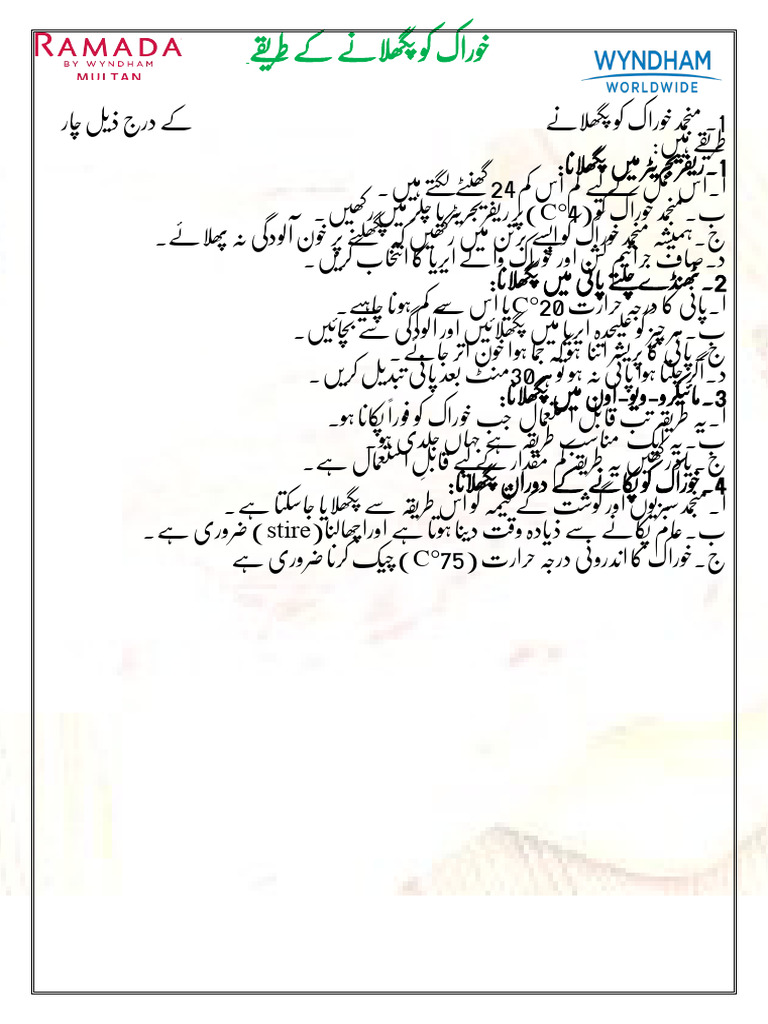 RAMADA
BY WYNDHAM
MULTAN
خوراک کو پگھلانے کے طریقے
WYNDHAM
WORLDWIDE
1۔ منجمد خوراک کو پگھلانے کے درج ذیل چار
طریقے ہیں:
1۔ریفریجریٹر میں پگھلانا:
ا۔اس عمل کے لیے کم اُس کم 24 گھنٹے لگتے ہیں۔
ب۔ منجمد خوراک کو (4°C) پر ریفریجریٹر یا چلر میں رکھیں۔
ج۔ہمیشہ منجمد خوراک کو ایسے برتن میں رکھیں کہ پگھلنے پر خون آلودگی نہ پھلائے۔
د۔صاف جراثیم کش اور خوراک والے ایریا کا انتخاب کریں۔
2۔ ٹھنڈے چلتے پانی میں پگھلانا:
ا۔پانی کا درجہ حرارت 20°C یا اس سے کم ہونا چاہیے۔
ب۔ ہر چیز کو علیحدہ ایریا میں پگھلائیں اور آلودگی سے بچائیں۔
ج۔ پانی کا پریشر اتنا ہو کہ جما ہوا خون اتر جائے۔
د۔اگر چلتا ہوا پانی نہ ہو تو ہر 30 منٹ بعد پانی تبدیل کریں۔
3۔مائیکرو-ویو-اون میں پگھلانا:
ا۔یہ طریقہ تب قابل استعمال جب خوراک کو فوراً پکانا ہو۔
ب۔یہ ایک مناسب طریقہ ہے جہاں جلدی ہو۔
ج۔یاد رکھیں یہ طریقہ کم مقدار کے لیے قابلِ استعمال ہے۔
4۔خوراک کو پکانے کے دوران پگھلانا:
ا۔منجمد سبزیوں اور گوشت کے قیمہ کو اس طریقہ سے پگھلایا جا سکتا ہے۔
ب۔عام پکانے سے ذیادہ وقت دینا ہونا ہے اور اچھالنا (stire) ضروری ہے۔
ج۔خوراک کا اندرونی درجہ حرارت (75°C) چیک کرنا ضروری ہے